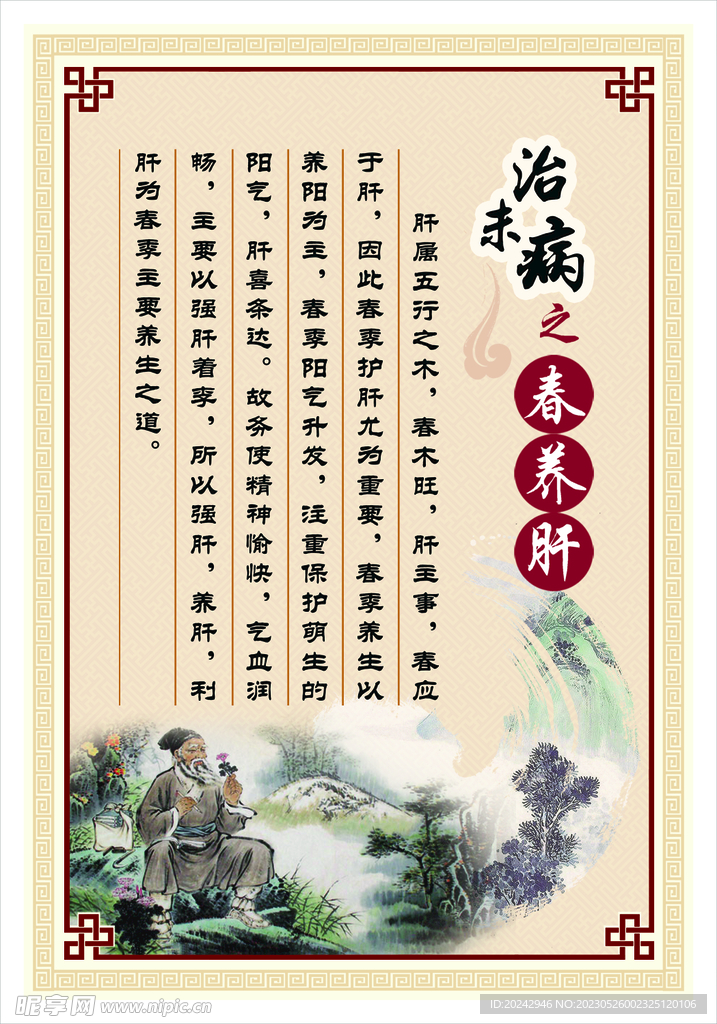 治未病
之
春养肝
肝属五行之木，春木旺，肝主事，春应
于肝，因此春季护肝尤为重要，春季养生以
养阳为主，春季阳气升发，注重保护萌生的
阳气，肝喜条达。故务使精神愉快，气血润
畅，主要以强肝着季，所以强肝，养肝，利
肝为春季主要养生之道。
昵享网 www.nipic.cn
ID:20242946 NO:20230526002325120106